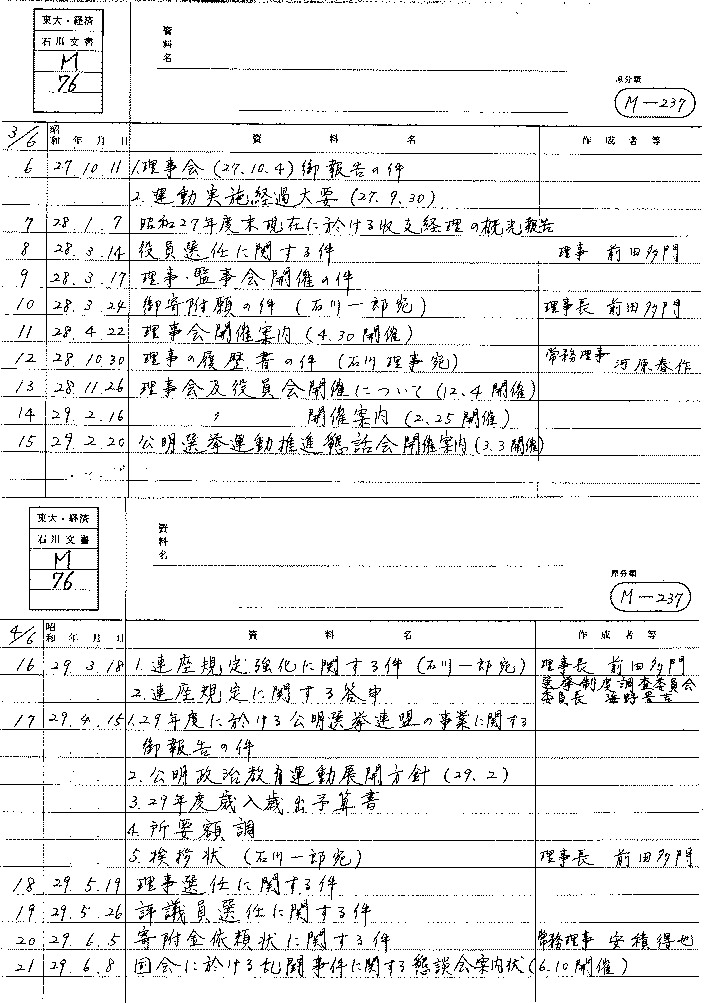 東大・経済
石川文書
M
76
資料名
原分類
M-237
3/6 昭和 年 月 日 資料名 作成者等
6 27.10.11 1.理事会(27.10.4)御報告の件
2.運動実施経過大要(27.9.30)
7 28.1.7 昭和27年度末現在に於ける収支経理の概況報告
8 28.3.14 役員選任に関する件 理事 前田多門
9 28.3.17 理事・監事会開催の件
10 28.3.24 御寄附願の件(石川一郎宛) 理事長 前田多門
11 28.4.22 理事会開催案内(4.30開催)
12 28.10.30 理事の履歴書の件(石川理事宛) 常務理事 河原春作
13 28.11.26 理事会及役員会開催について(12.4開催)
14 29.2.16 〃 開催案内(2.25開催)
15 29.2.20 公明選挙運動推進懇話会開催案内(3.3開催)
東大・経済
石川文書
M
76
資料名
原分類
M-237
4/6 昭和 年 月 日 資料名 作成者等
16 29.3.18 1.連座規定強化に関する件(石川一郎宛) 理事長 前田多門
2.連座規定に関する答申 選挙制度調査委員会
委員長 海野晋吉
17 29.4.15 1.29年度に於ける公明選挙連盟の事業に関する
御報告の件
2.公明政治教育運動展開方針(29.2)
3.29年度歳入歳出予算書
4.所要額調
5.挨拶状(石川一郎宛) 理事長 前田多門
18 29.5.19 理事選任に関する件
19 29.5.26 評議員選任に関する件
20 29.6.5 寄附金依頼状に関する件 常務理事 安積得也
21 29.6.8 国会に於ける乱闘事件に関する懇談会案内状(6.10開催)